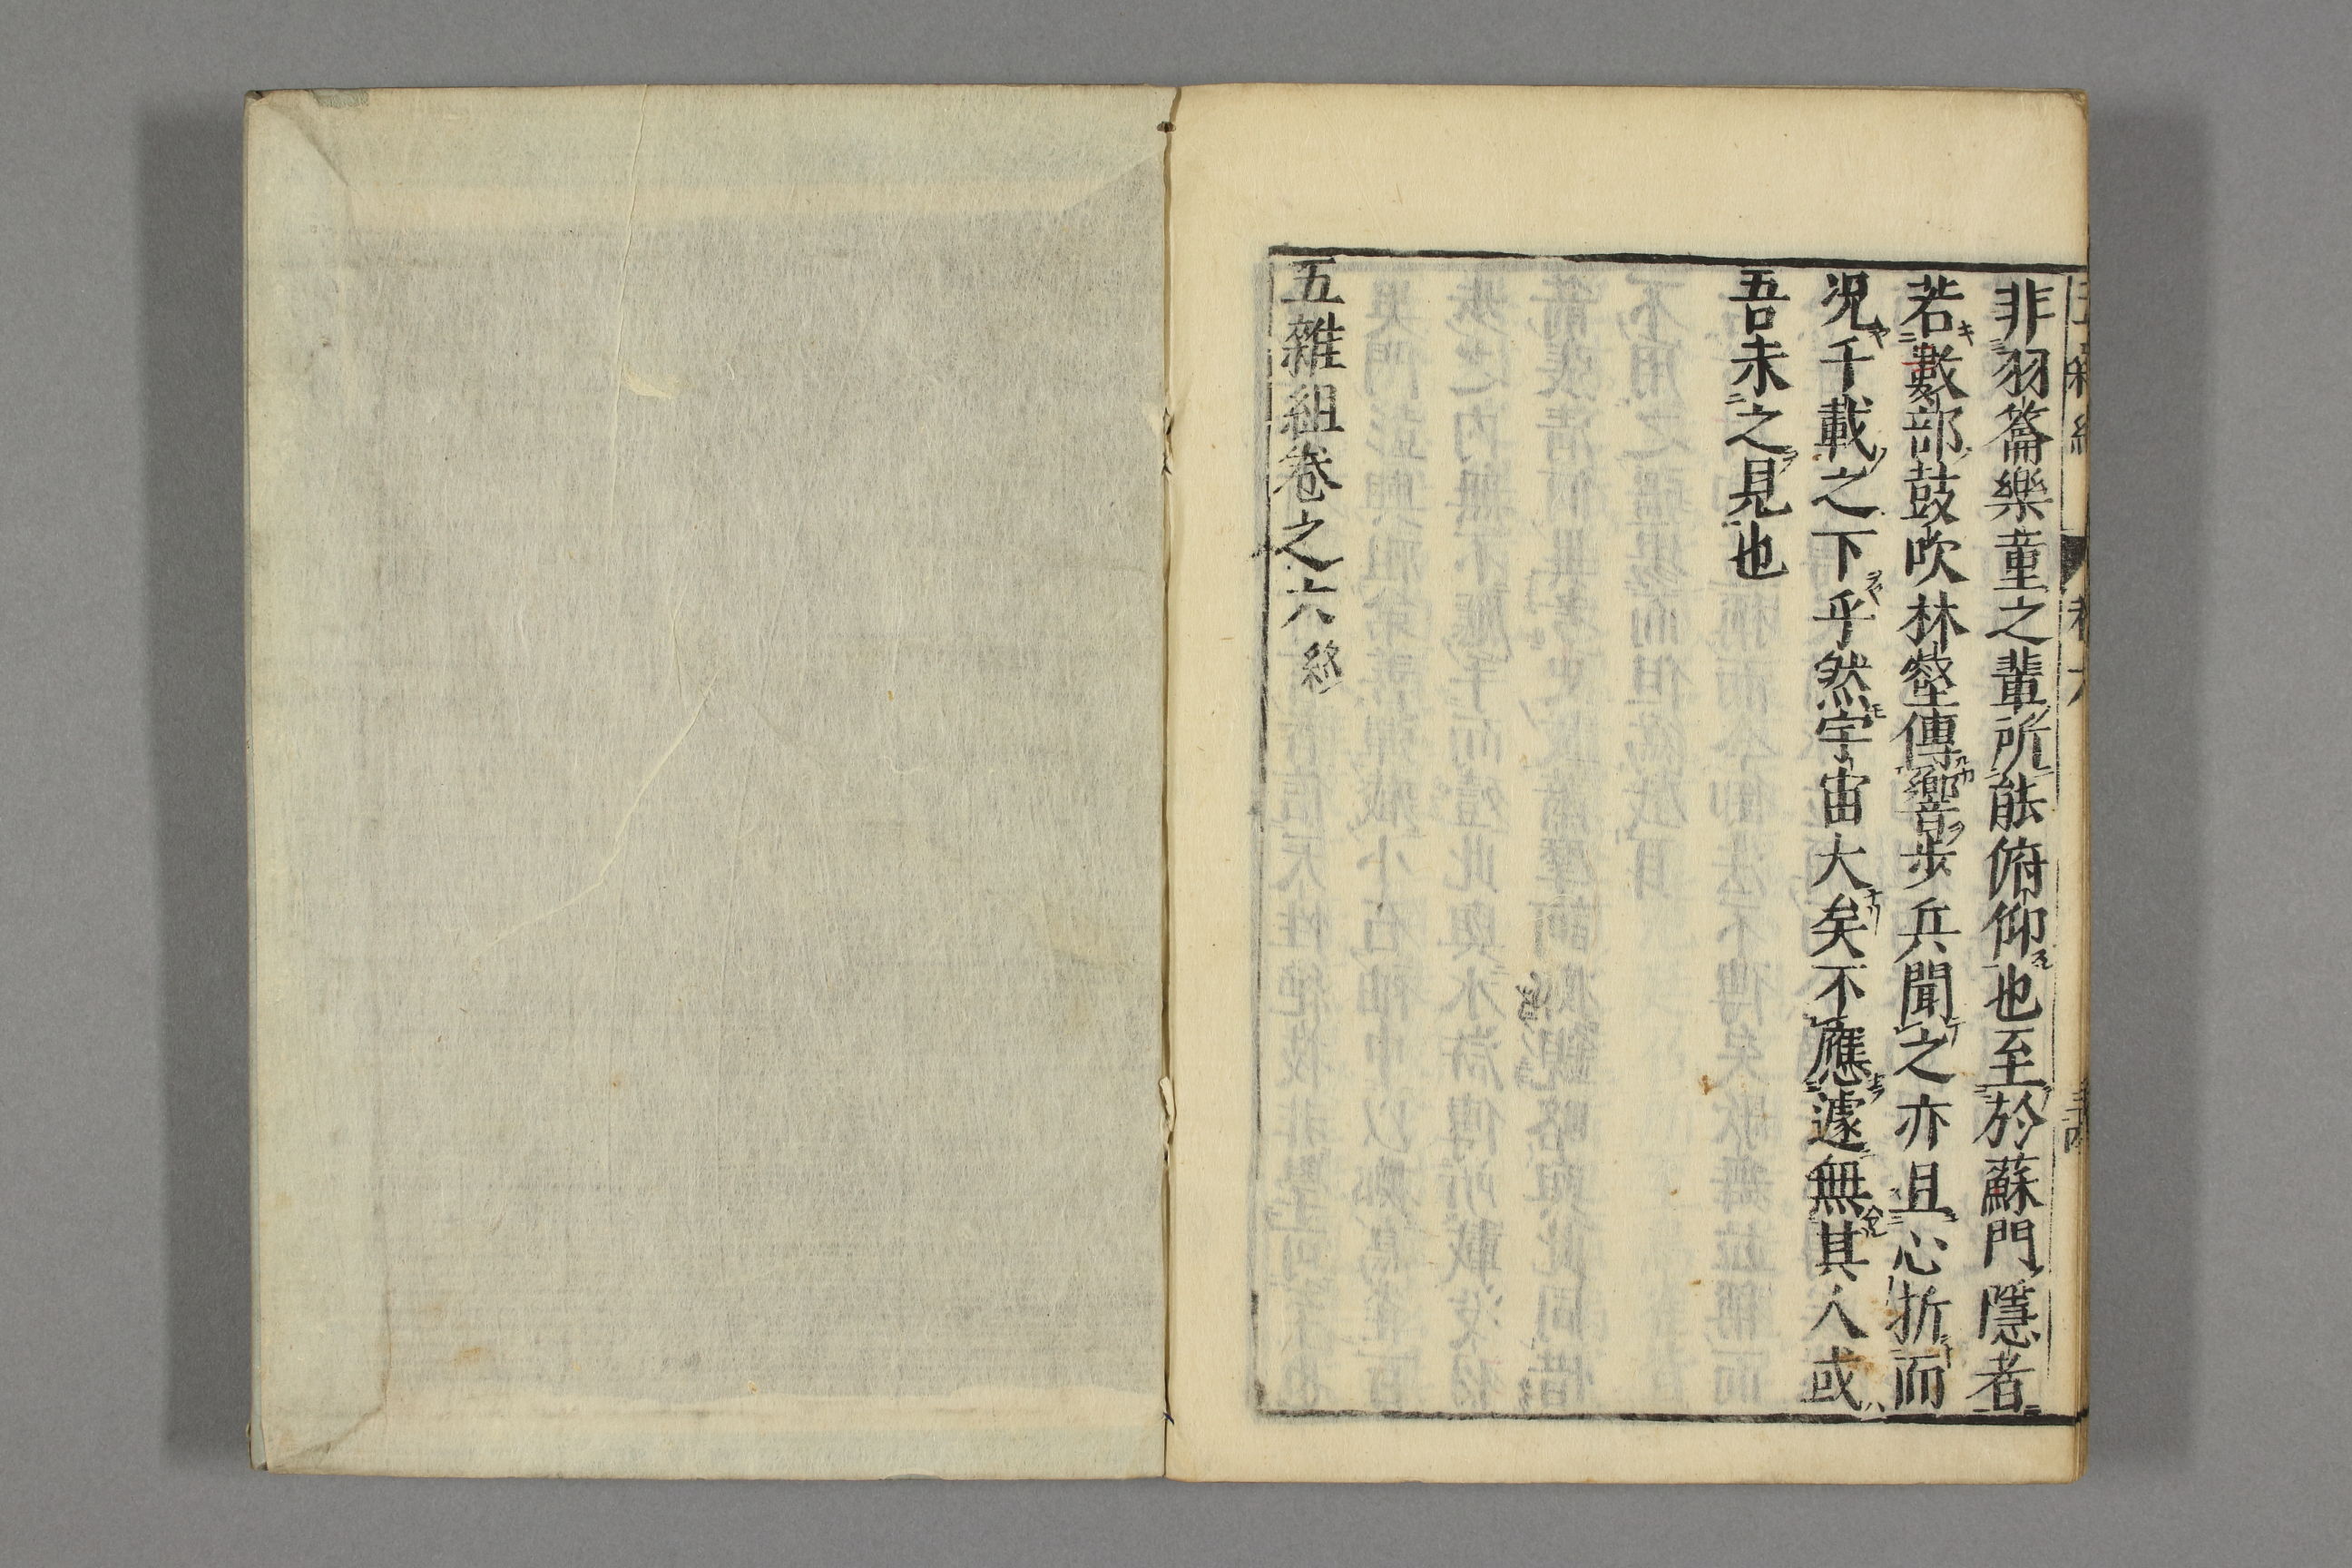 非羽籥樂童之輩所能俯仰也至於蘇門隱者
若數部鼓吹林壑傳響步兵聞之亦且心折而
況千載之下乎然宇宙大矣不應遽無其人或
吾未之見也
五雜組卷之六終